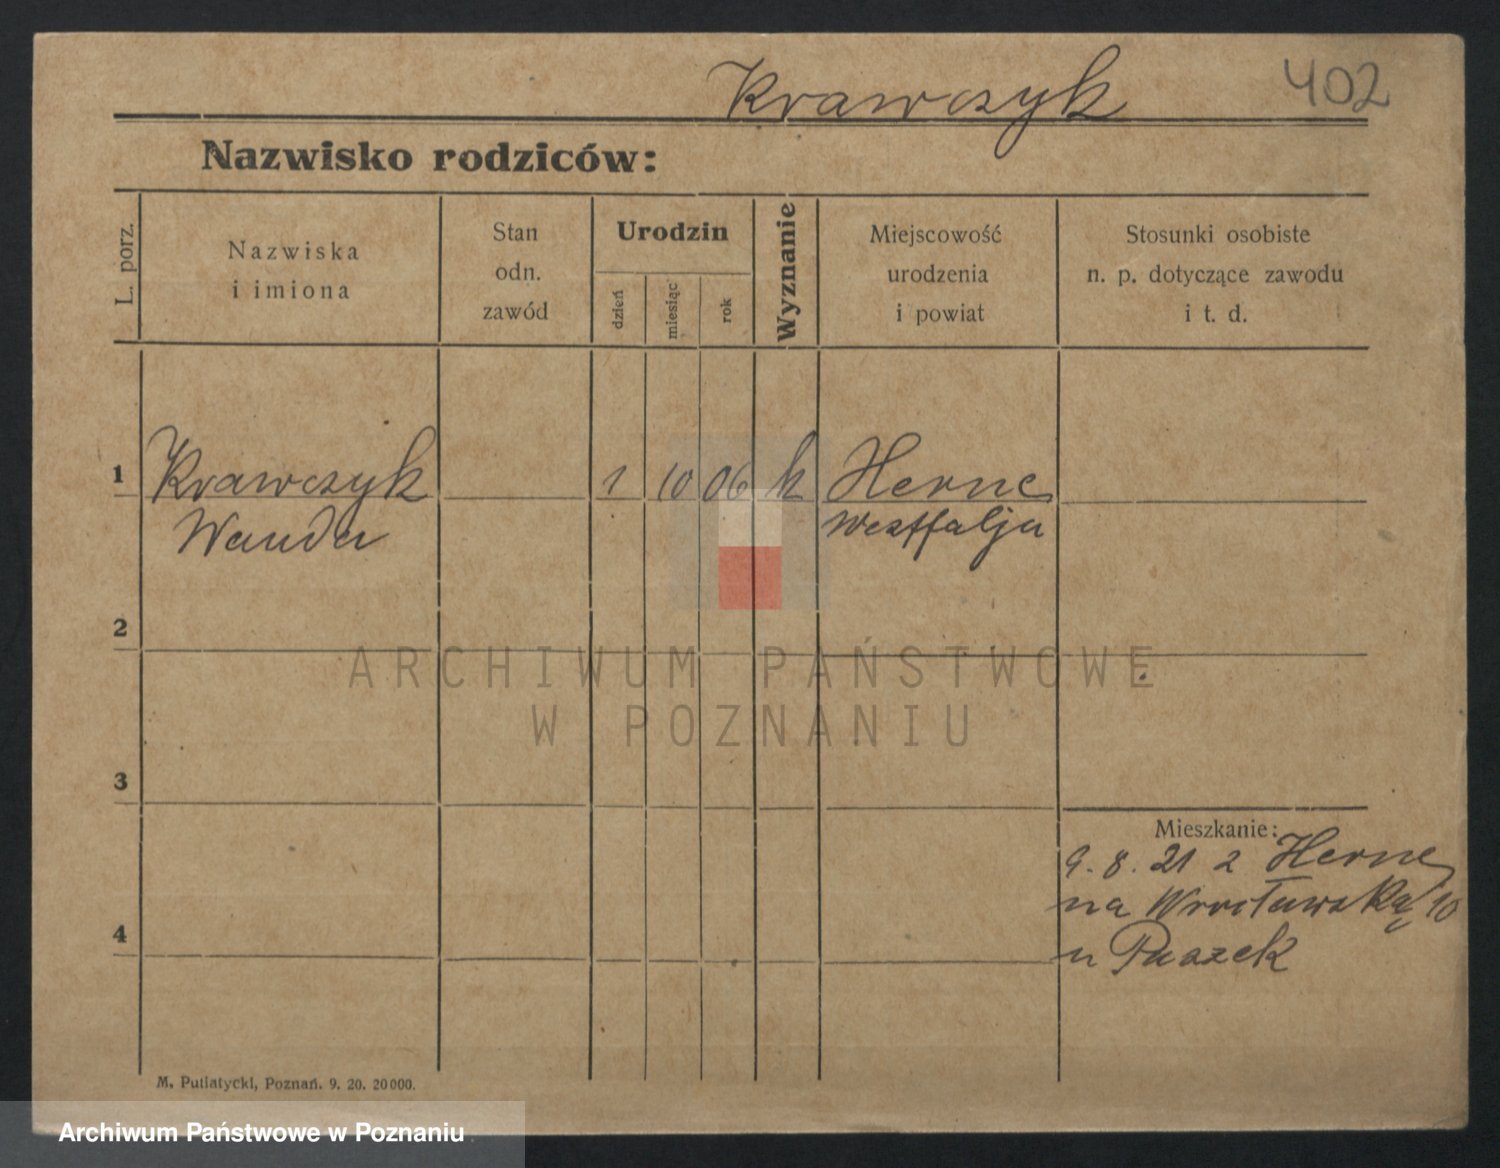 Krawczyk 402
Nazwisko rodziców:
L. porz.
Nazwiska
i imiona
Stan
odn.
zawód
Urodzin
dzień
miesiąc
rok
Wyznanie
Miejscowość
urodzenia
i powiat
Stosunki osobiste
n. p. dotyczące zawodu
i t. d.
1 Krawczyk 1 10 06 k Herne
Wanda Westfalja
2
ARCHIWUM PAŃSTWOWE
W POZNANIU
3
Mieszkanie:
9. 8. 21 z Herne
na Wrocławską 10
4
u Paszek
M. Putiatycki, Poznań. 9. 20. 20000.
Archiwum Państwowe w Poznaniu